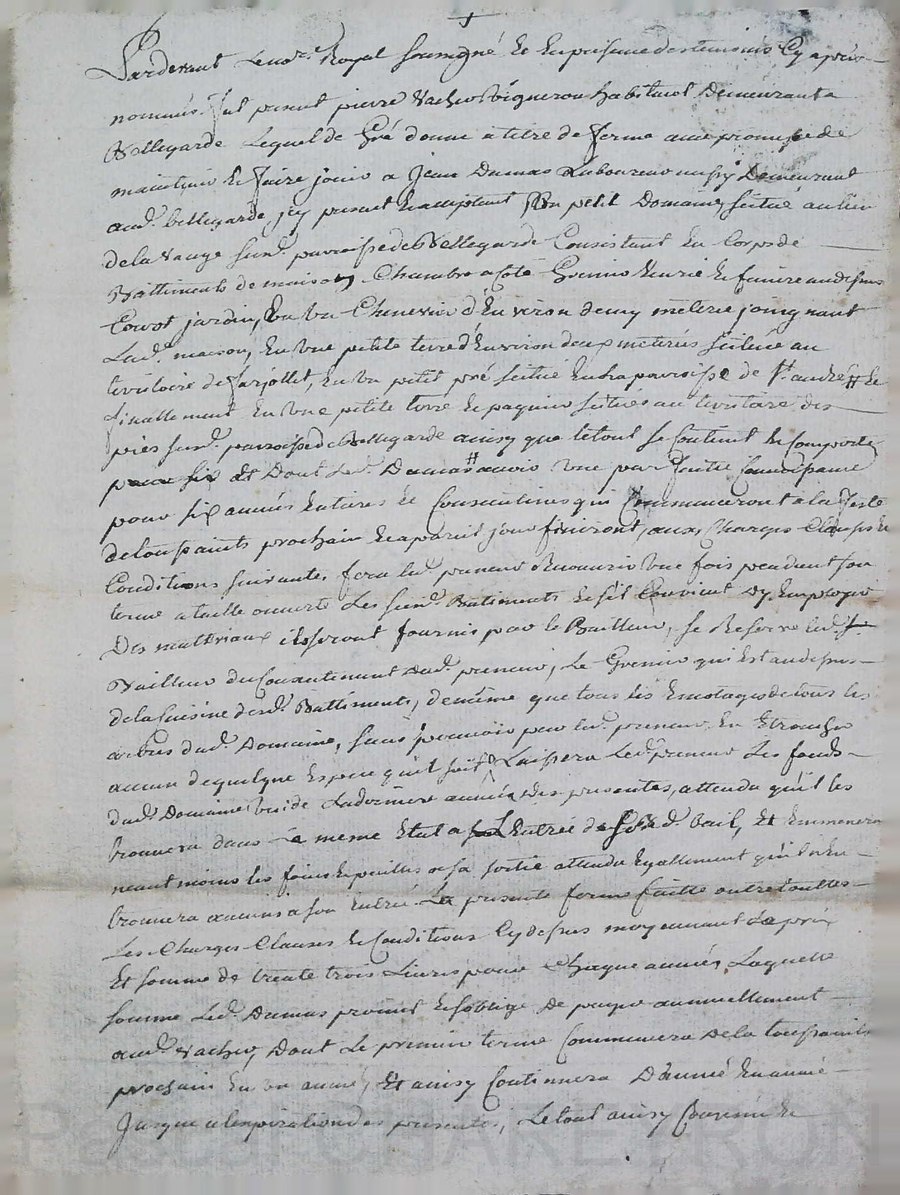 Pardevant Le no.re Royal Soussigné Et En présance des temoins Cy après
nommés fut present pierre Vacher Vigneron habitant Demeurant a
Bellegarde Lequel de Gré donne a titre de ferme avec promesse de
maintenir Et faire jouir a Jean Dumas Laboureur aussy Demeurant
aud. bellegarde, jcy present Et acceptant Un petit Domaine scitué au lieu
dela Vauge susd. parroisse de Bellegarde Consistant En Corps de
Battiments de maison Chambre a Coté Grenier Ecurie Et feniere au dessus
Court jardin, En Un Chenevier d'Environ demy méterée joignant
Lad. maison, En Une petite terre d'Environ deux meterées scituée au
territoire de farjollet, En Un petit pré scitué En La parroisse de St. andré Et
finallement En Une petite terre Et paquier scitués au territoire des
près susd. parroisse de Bellegarde ainsy que le tout Se Contient Et Comporte
Et Dont Led. Dumas
pour six années Entieres Et Consecutives qui Commanceront a la feste
de toussaints prochain Et a pareil jour finiront, aux Charges Clauses Et
Conditions suivantes fera led. preneur Recouvrir Une fois pendant son
terme a taille ouverte Les susd. Battiments Et s'il Convient D'y Employer
Des matteriaux ils seront fournis par le Bailleur, se Reserve led.
Bailleur du Consentement dud. preneur, Le Grenier qui Est au dessus
de la Cuisine desd. Battiments, de même que tous les Emotages de tous les
arbres dud. Domaine, sans pouvoir par led. preneur En Ebrancher
aucun de quelque Espece qu'il soit, Laissera Led. preneur Les fonds
dud. Domaine Vuide La derniere année des presentes, attendu qu'il les
trouvera dans Le meme Etat a L'Entrée de sond. bail, Et Emmenera
neant moins les foins Et pailles a sa sortie attendu Egallement qu'il n'En
trouvera aucuns a son Entrée La presente ferme faitte outre touttes
Les Charges Clauses Et Conditions Cy dessus moyennant Le prix
Et somme de trente trois Livres pour Chaque année, Laquelle
somme Led. Dumas promet Et s'oblige De payer annuellement
aud. Vacher, Dont Le premier terme Commencera De la toussaints
prochain En un année, Et ainsy Continuera D'année En année
Jusque a l'expiration des presentes, Le tout ainsy Convenu Et
Pascal CHARETRON